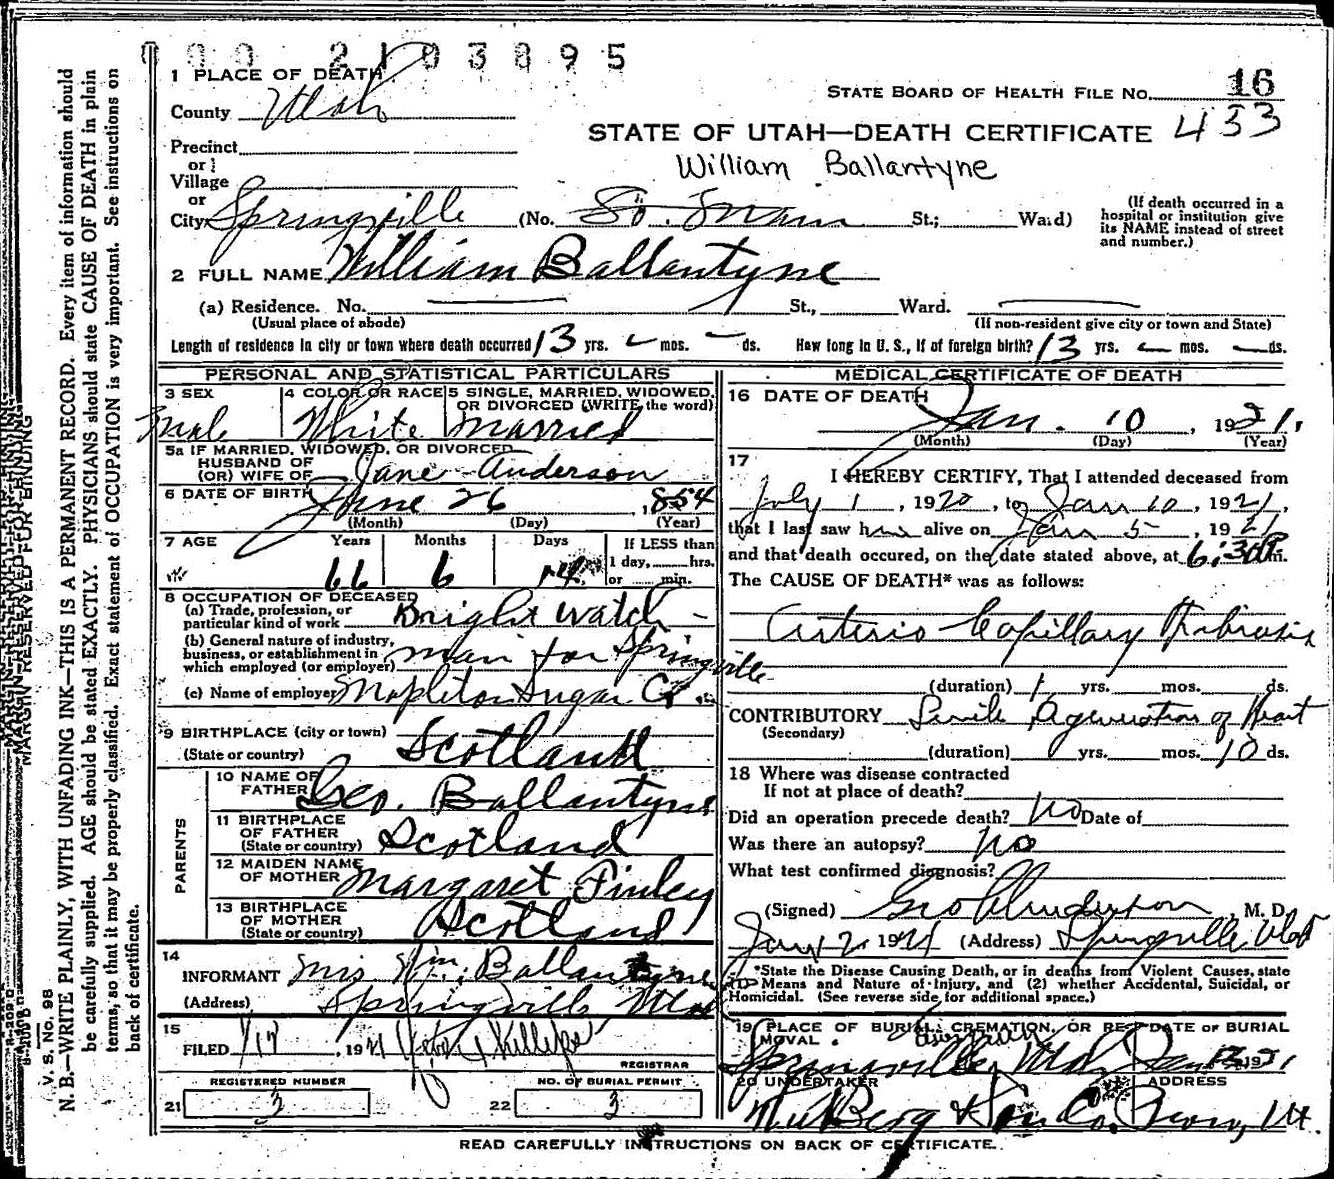 0 0 0 2 1 0 3 8 9 5
1 PLACE OF DEATH
County Utah
STATE BOARD OF HEALTH FILE No. 16
STATE OF UTAH—DEATH CERTIFICATE 433
William Ballantyne
Precinct
or
Village
or
City Springville (No. So. Main St.; Ward)
(If death occurred in a
hospital or institution give
its NAME instead of street
and number.)
2 FULL NAME William Ballantyne
(a) Residence. No. St., Ward.
(Usual place of abode) (If non-resident give city or town and State)
Length of residence in city or town where death occurred 13 yrs. - mos. - ds. How long in U. S., if of foreign birth? 13 yrs. - mos. - ds.
PERSONAL AND STATISTICAL PARTICULARS
3 SEX
Male
4 COLOR OR RACE
White
5 SINGLE, MARRIED, WIDOWED,
OR DIVORCED (WRITE the word)
Married
5a IF MARRIED, WIDOWED, OR DIVORCED
HUSBAND OF
(OR) WIFE OF Jane Anderson
6 DATE OF BIRTH June 26, 1854
(Month) (Day) (Year)
7 AGE Years Months Days If LESS than
1 day, hrs.
or min.
66 6 14
8 OCCUPATION OF DECEASED
(a) Trade, profession, or
particular kind of work Knight Watch-
(b) General nature of industry,
business, or establishment in
which employed (or employer) man for Springville
(c) Name of employer Mapleton Sugar Co.
9 BIRTHPLACE (city or town)
(State or country) Scotland
PARENTS
10 NAME OF
FATHER Geo. Ballantyne
11 BIRTHPLACE
OF FATHER
(State or country) Scotland
12 MAIDEN NAME
OF MOTHER Margaret Finley
13 BIRTHPLACE
OF MOTHER
(State or country) Scotland
14
INFORMANT Mrs Wm. Ballantyne
(Address) Springville Utah
15
FILED 1/17, 1921
REGISTRAR
REGISTERED NUMBER
21 3
NO. OF BURIAL PERMIT
22 3
MEDICAL CERTIFICATE OF DEATH
16 DATE OF DEATH
Jan. 10, 1921.
(Month) (Day) (Year)
17
I HEREBY CERTIFY, That I attended deceased from
July 1, 1920, to Jan 10, 1921,
that I last saw him alive on Jan 5, 1921
and that death occured, on the date stated above, at 6:30 P.m.
The CAUSE OF DEATH* was as follows:
Arterio Capillary Fibrosis
(duration) 1 yrs. mos. ds.
CONTRIBUTORY Senile Degeneration of Heart
(Secondary)
(duration) yrs. mos. 10 ds.
18 Where was disease contracted
If not at place of death?
Did an operation precede death? No Date of
Was there an autopsy? No
What test confirmed diagnosis?
(Signed) Geo Anderson M. D.
Jan 12 1921 (Address) Springville Utah
*State the Disease Causing Death, or in deaths from Violent Causes, state
(1) Means and Nature of Injury, and (2) whether Accidental, Suicidal, or
Homicidal. (See reverse side for additional space.)
19 PLACE OF BURIAL, CREMATION, OR REMOVAL DATE OF BURIAL
Springville, Utah Jan 1921
20 UNDERTAKER ADDRESS
Berg & Son Co. Provo, Ut.
READ CAREFULLY INSTRUCTIONS ON BACK OF CERTIFICATE.
V. S. No. 98
N. B.—WRITE PLAINLY, WITH UNFADING INK—THIS IS A PERMANENT RECORD. Every item of information should
be carefully supplied. AGE should be stated EXACTLY. PHYSICIANS should state CAUSE OF DEATH in plain
terms, so that it may be properly classified. Exact statement of OCCUPATION is very important. See instructions on
back of certificate.
MARGIN RESERVED FOR BINDING